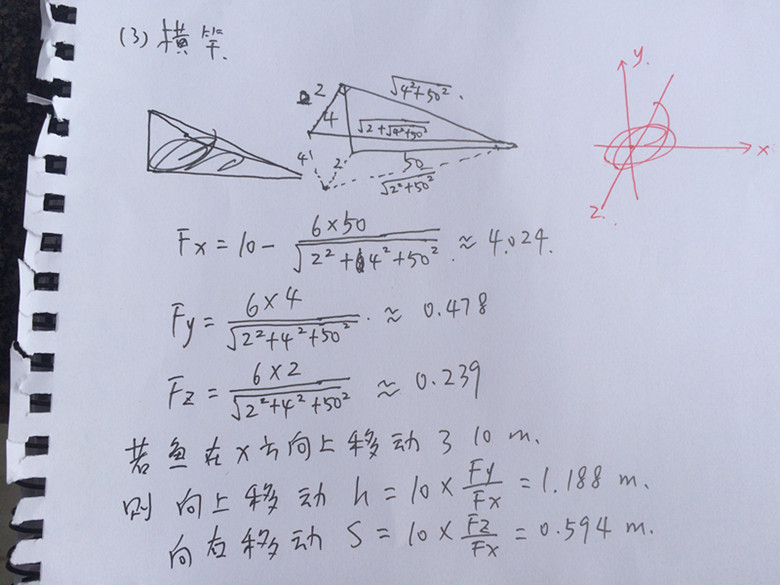 (3) 横竿.
2
4
√4²+50².
√2+√4²+50²
4'
2
50
√2²+50²
y.
x
z.
Fx = 10 - 6×50/√2²+4²+50². ≈ 4.024.
Fy = 6×4/√2²+4²+50². ≈ 0.478
Fz = 6×2/√2²+4²+50² ≈ 0.239
若鱼在x方向上移动了10 m.
则向上移动 h = 10 × Fy/Fx = 1.188 m.
向右移动 S = 10 × Fz/Fx = 0.594 m.